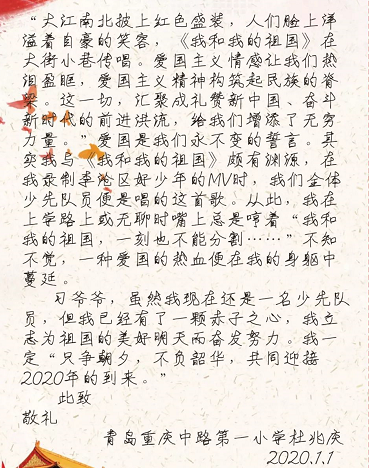 “大江南北披上红色盛装，人们脸上洋
溢着自豪的笑容，《我和我的祖国》在
大街小巷传唱。爱国主义情感让我们热
泪盈眶，爱国主义精神构筑起民族的脊
梁。这一切，汇聚成礼赞新中国、奋斗
新时代的前进洪流，给我们增添了无穷
力量。”爱国是我们永不变的誓言。其
实我与《我和我的祖国》颇有渊源，在
我录制李沧区好少年的MV时，我们全体
少先队员便是唱的这首歌。从此，我在
上学路上或无聊时嘴上总是哼着“我和
我的祖国，一刻也不能分割……”不知
不觉，一种爱国的热血便在我的身躯中
蔓延。
习爷爷，虽然我现在还是一名少先队
员，但我已经有了一颗赤子之心，我立
志为祖国的美好明天而奋发努力。我一
定“只争朝夕，不负韶华，共同迎接
2020年的到来。”
此致
敬礼
青岛重庆中路第一小学杜兆庆
2020.1.1